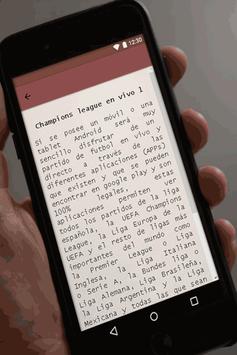 12:30
Champions league en vivo 1
Si se posee un móvil o una
tablet Android será muy
sencillo disfrutar de un
partido de futbol en vivo y
directo a través de las
diferentes aplicaciones (APPs)
que existen y que se pueden
encontrar en google play y son
100% legales, estas
aplicaciones permiten ver
todos los partidos de la liga
española, la UEFA Champions
League, la Liga Europa de la
UEFA y el resto de ligas más
importantes del mundo como
la Premier League o Liga
Inglesa, la Liga Italiana
o Serie A, la Bundes liga o
Liga Alemana, Liga Brasileña,
la Liga Argentina y la Liga
Mexicana y todas las que sean